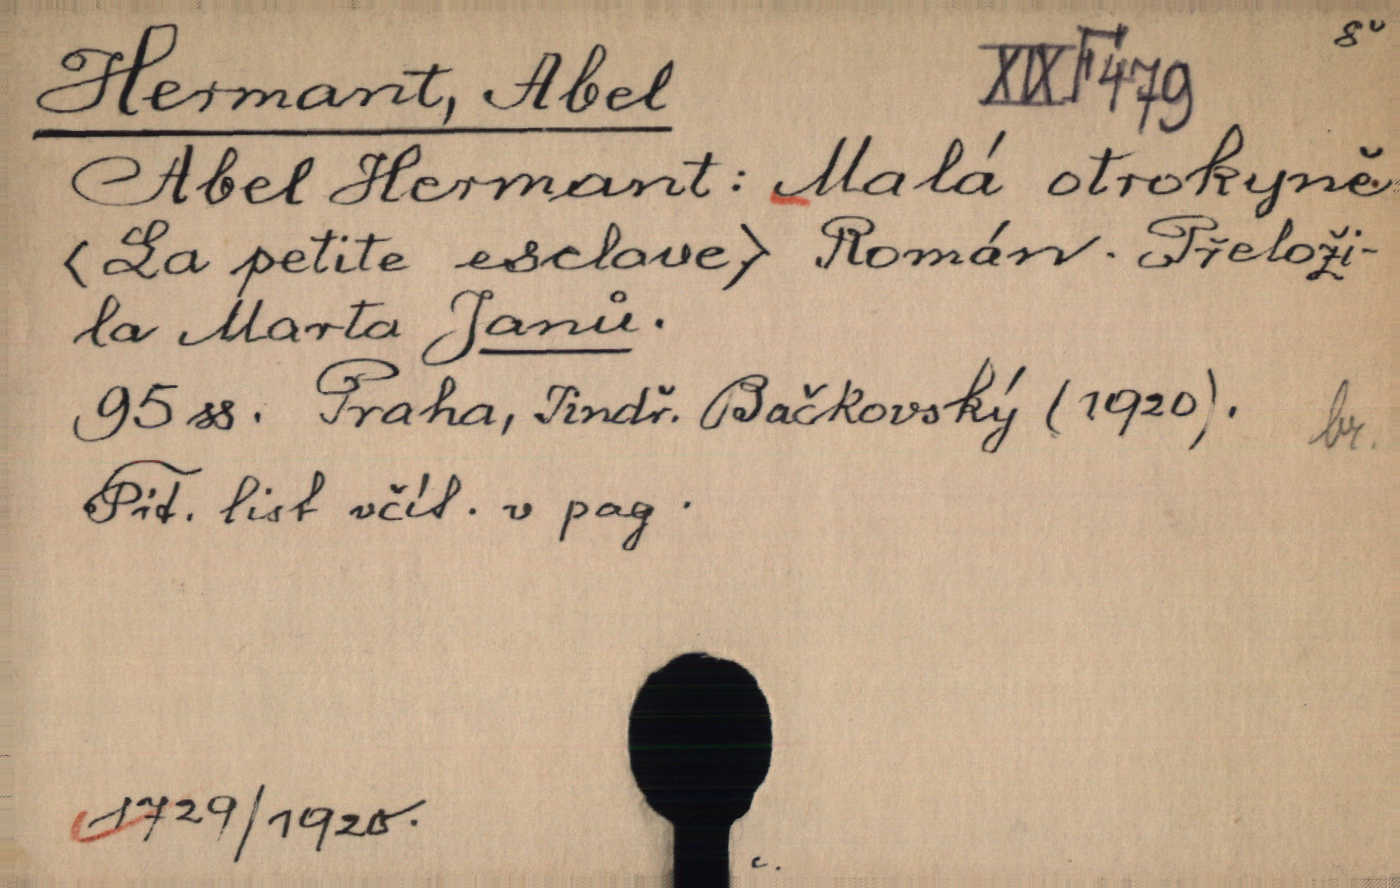 8°
Hermant, Abel
XIX F 479
Abel Hermant: Malá otrokyně
<La petite esclave> Román. Přeloži-
la Marta Janů.
95 ss. Praha, Jindř. Bačkovský (1920).
br.
Tit. list včít. v pag.
1729/1920.
c.